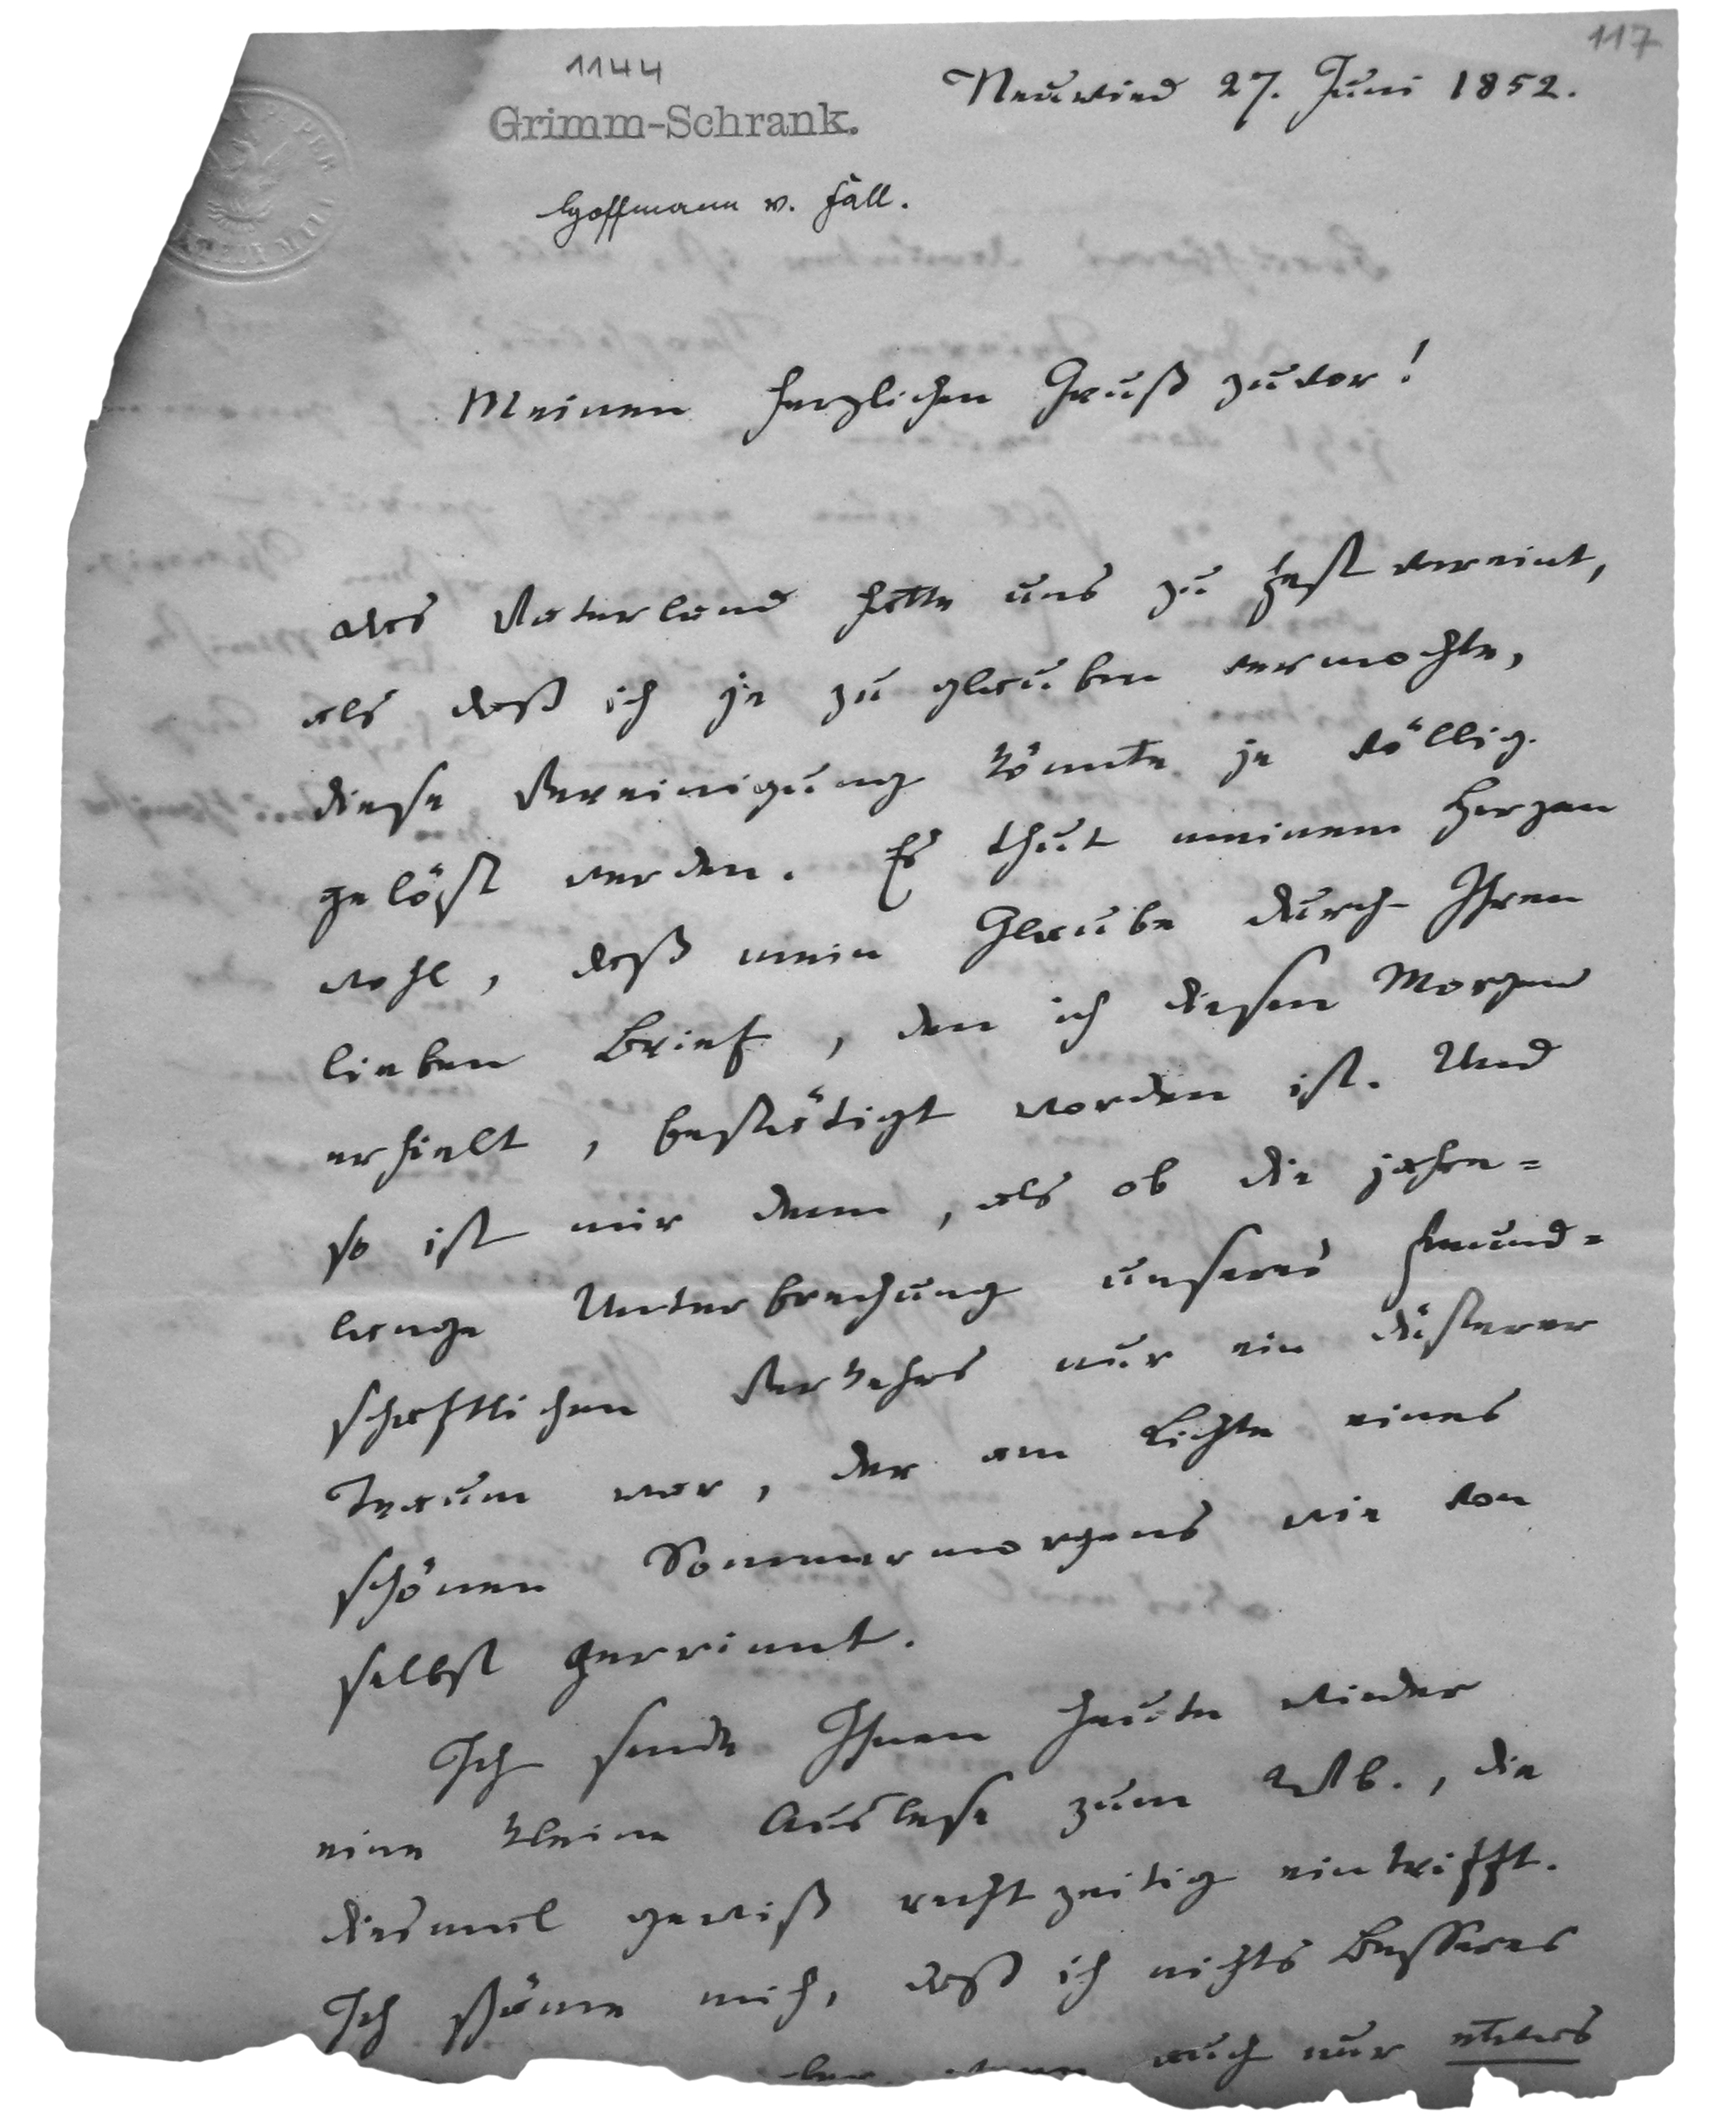 117
1144
Neuwied 27. Juni 1852.
Grimm-Schrank.
Hoffmann v. Fall.
Meinen herzlichen Gruß zuvor!
das Vaterland hatte uns zu fest vereint,
als daß ich je zu glauben vermochte,
diese Vereinigung könnte je völlig
gelöst werden. Es thut meinem Herzen
wohl, daß mein Glaube durch Ihren
lieben Brief, den ich diesen Morgen
erhielt, bestätigt worden ist. Und
so ist mir denn, als ob die jahre=
lange Unterbrechung unseres freund=
schaftlichen Verkehrs nur ein düsterer
Traum war, der am Lichte eines
schönen Sommermorgens wie von
selbst zerrinnt.
Ich sende Ihnen heute wieder
eine kleine Auslese zum Wb., die
diesmal gewiß rechtzeitig eintrifft.
Ich schäme mich, daß ich nichts Besseres
auch nur etwas